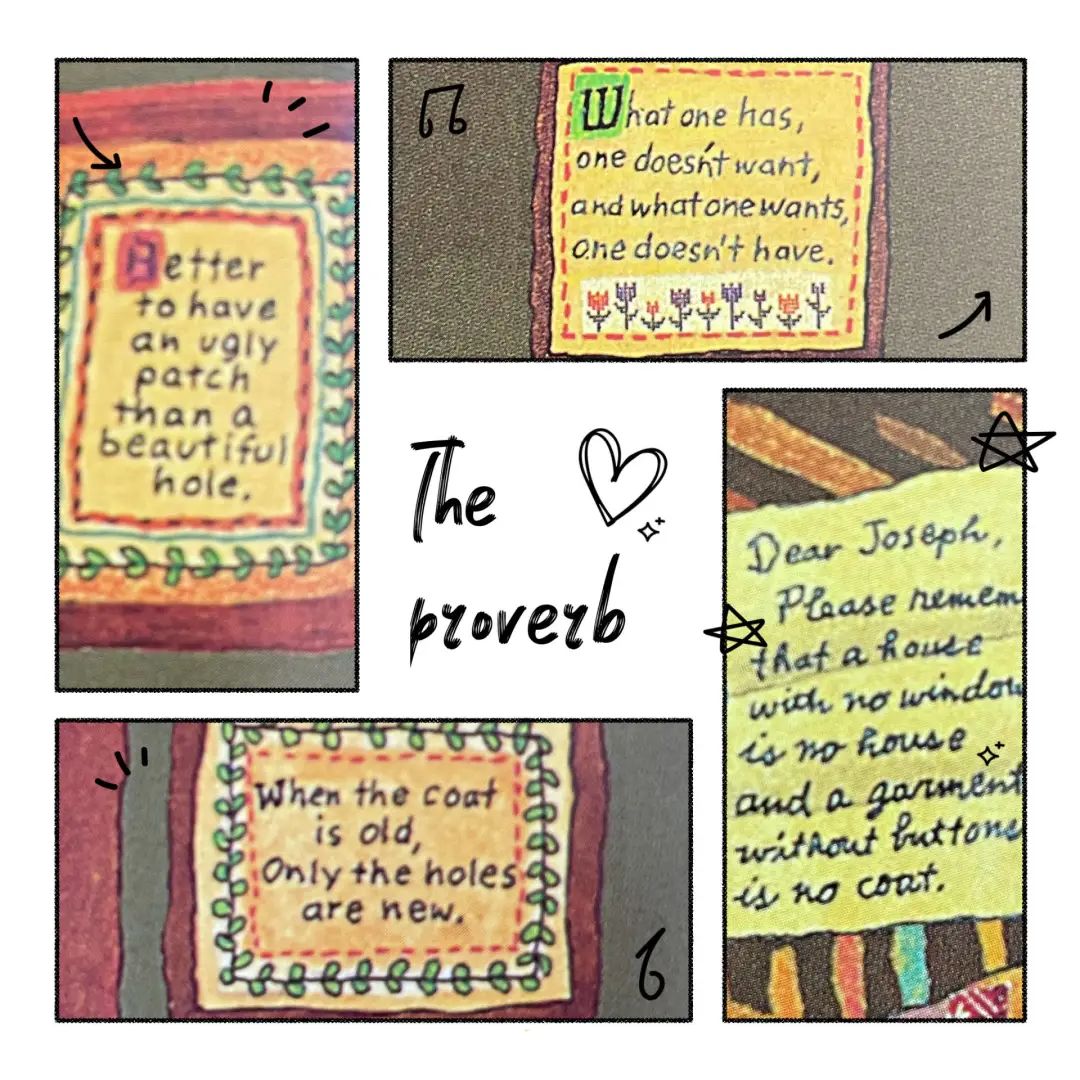 Better
to have
an ugly
patch
than a
beautiful
hole.
What one has,
one doesn't want,
and what one wants,
one doesn't have.
The
proverb
Dear Joseph,
Please remem
that a house
with no window
is no house
and a garment
without buttons
is no coat.
When the coat
is old,
Only the holes
are new.